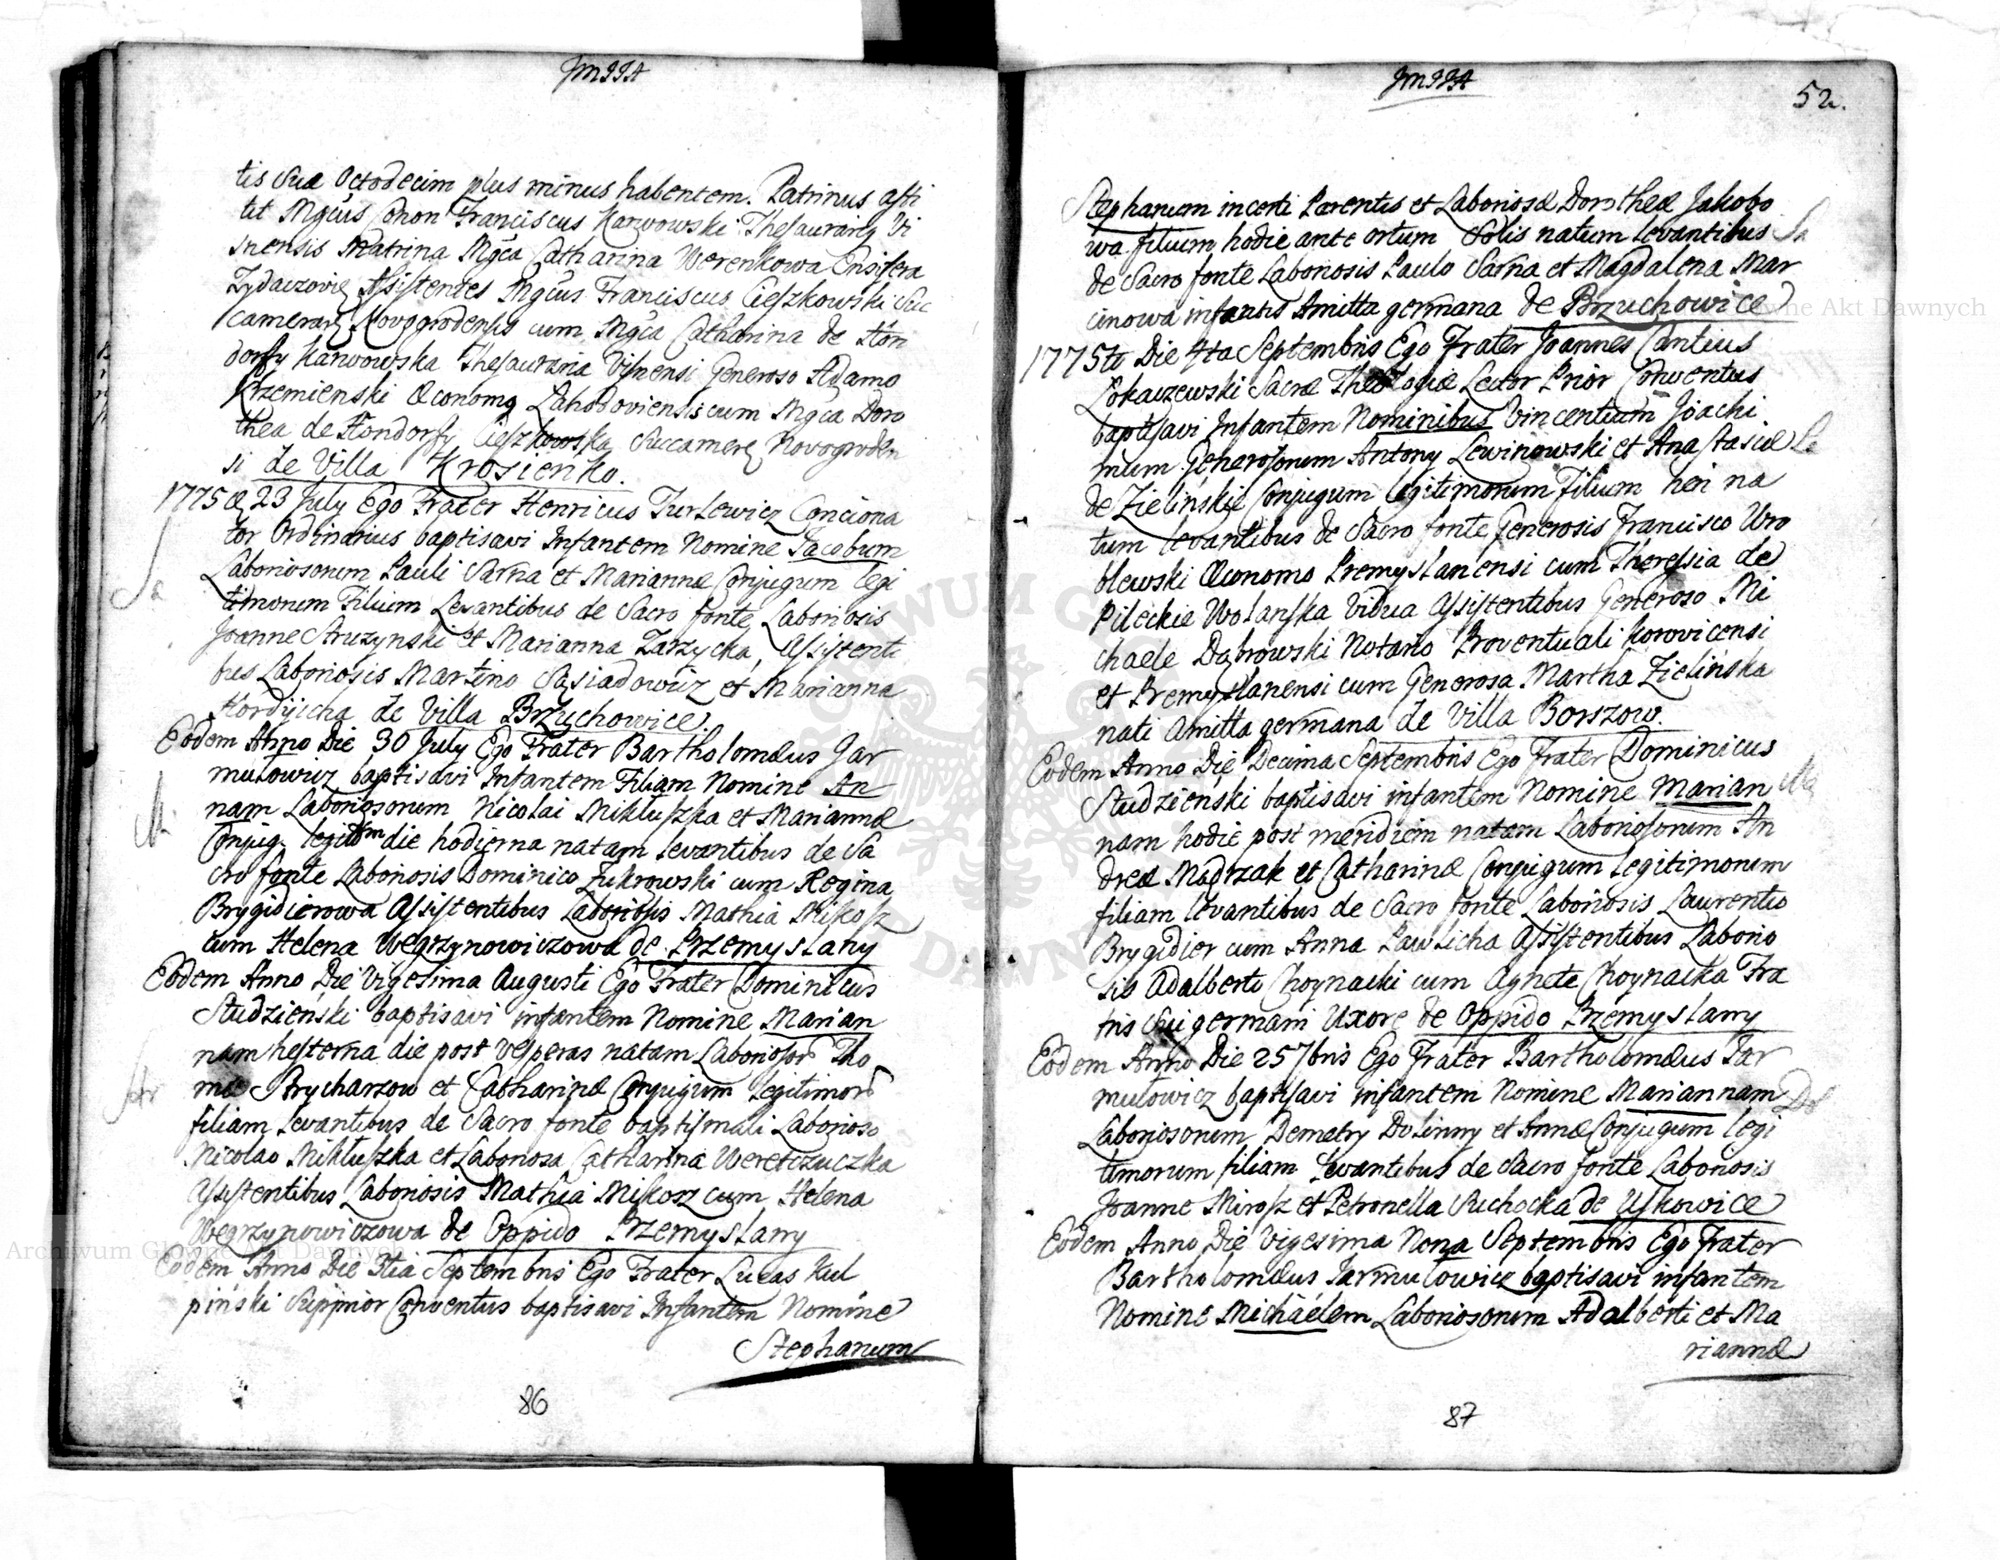 tis suæ Octodecim plus minus habentem. Patrinus asti
tit Mgcus Conon Franciscus Karwowski Thesaurarig Vi
snensis Matrina Mgca Catharina Werenkowa Ensifera
Zydaczovien Assistentes Mgcus Franciscus Cieszkowski Suc
camerar Novogrodensis cum Mgca Catharina de Hon
dorffy Karwowska Thesauraria Visnensi Generoso Adamo
Krzemienski Œconomo Lahodoviensis cum Mgca Doro
thea de Hondorffy Cieszkowska Succamer Novogroden
si de Villa Krosienko.
1775 æ 23 July Ego Frater Henricus Turlewicz Conciona
tor Ordinarius baptisavi Infantem Nomine Jacobum
Laboriosorum Pauli Sarna et Mariannæ Conjugum legi
timorum Filium Levantibus de Sacro fonte Laboriosis
Joanne Struzynski et Marianna Zarzycka, Assistenti
bus Laboriosis Martino Sasiadowicz et Marianna
Hordijicha de Villa Brzuchowice.
Eodem Anno Die 30 July Ego Frater Bartholomæus Jar
mułowicz baptisavi Infantem Filiam Nomine An
nam Laboriosorum Nicolai Mikłuszka et Mariannæ
Conjug. legitim die hodierna natam levantibus de Sa
cro fonte Laboriosis Dominico Zukrowski cum Regina
Brygidierowa Assistentibus Laboriosis Mathia Mikosz
cum Helena Węgrzynowiczowa de Przemyslany
Eodem Anno Die Vigesima Augusti Ego Frater Dominicus
Studzieński baptisavi infantem Nomine Marian
nam hesterna die post vesperas natam Laborioso Tho
mæ Prycharzow et Catharinæ Conjugum legitimor
filiam levantibus de Sacro fonte baptismali Laborioso
Nicolao Mikłuszka et Laboriosa Catharina Weretczuczka
Assistentibus Laboriosis Mathia Mikosz cum Helena
Węgrzynowiczowa de Oppido Przemyslany
Eodem Anno Die 3tia Septembris Ego Frater Lucas Kul
piński Suppior Conventus baptisavi Infantem Nomine
Stephanum
86
52.
Stephanum incerti Parentis et Laboriosæ Dorotheæ Jakobo
wa filium hodie ante ortum Solis natum levantibus
de Sacro fonte Laboriosis Paulo Sarna et Magdalena Mar
cinowa infantis Amitta germana de Brzuchowice
1775to Die 4ta Septembris Ego Frater Joannes Cantius
Łokaczewski Sacræ Theologiæ Lector Prior Conventus
baptisavi Infantem Nominibus Vincentium Joachi
mum Generosorum Antony Lewinowski et Anastasiæ
de Zielińskie Conjugum legitimorum Filium heri na
tum levantibus de Sacro fonte Generosis Francisco Wro
blewski Œconomo Premyslanensi cum Theressia de
Pileckie Wolanska Vidua Assistentibus Generoso Mi
chaele Dąbrowski Notario Proventuali Korovicensi
et Premyslanensi cum Generosa Martha Zielińska
nati Amitta germana de Villa Borszow.
Eodem Anno Die Decima Septembris Ego Frater Dominicus
Studzieński baptisavi infantem Nomine Marian
nam hodie post meridiem natam Laboriosorum An
dreæ Madrzak et Catharinæ Conjugum legitimorum
filiam levantibus de Sacro fonte Laboriosis Laurentio
Brygidier cum Anna Pawlicha Assistentibus Laborio
sis Adalberto Choynacki cum Agnete Choynacka Fra
tris sui germani Uxore de Oppido Przemyslany
Eodem Anno Die 25 7bris Ego Frater Bartholomæus Jar
mułowicz baptisavi infantem Nomine Mariannam
Laboriosorum Demetry Dolinny et Annæ Conjugum legi
timorum filiam levantibus de Sacro fonte Laboriosis
Joanne Mirosz et Petronella Suchocka de Uszkowice
Eodem Anno Die Vigesima Nona Septembris Ego Frater
Bartholomæus Jarmułowicz baptisavi infantem
Nomine Michaelem Laboriosorum Adalberti et Ma
riannæ
87
Archiwum Główne Akt Dawnych